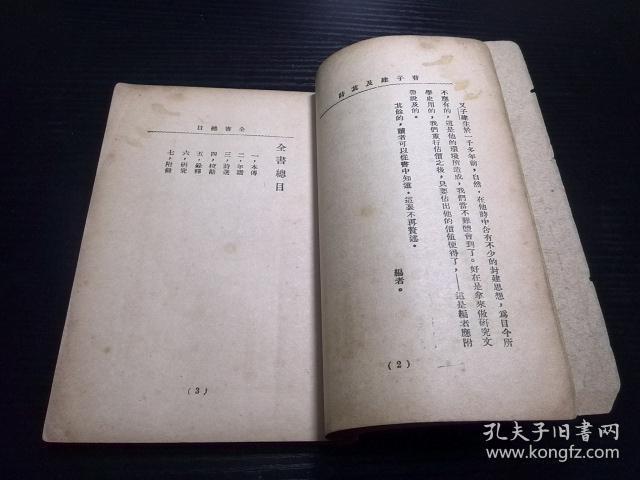 曹子建及其詩
又子建生於一千多年前，自然，在他時中含有不少的封建思想，爲目今所
不應有的，這是他的環境所造成，我們當不難體會到了。好在是拿來做研究文
學史用的，我們重行估價之後，只要估出他的價值便得了，——這是編者應附
帶說及的。
其餘的，讀者可以從書中知道，這裏不再贅述。
編者。
（2）
全書總目
全書總目
一，本傳
二，年譜
三，詩選
四，校勘
五，錄釋
六，研究
七，附錄
（3）
孔夫子旧书网
www.kongfz.com